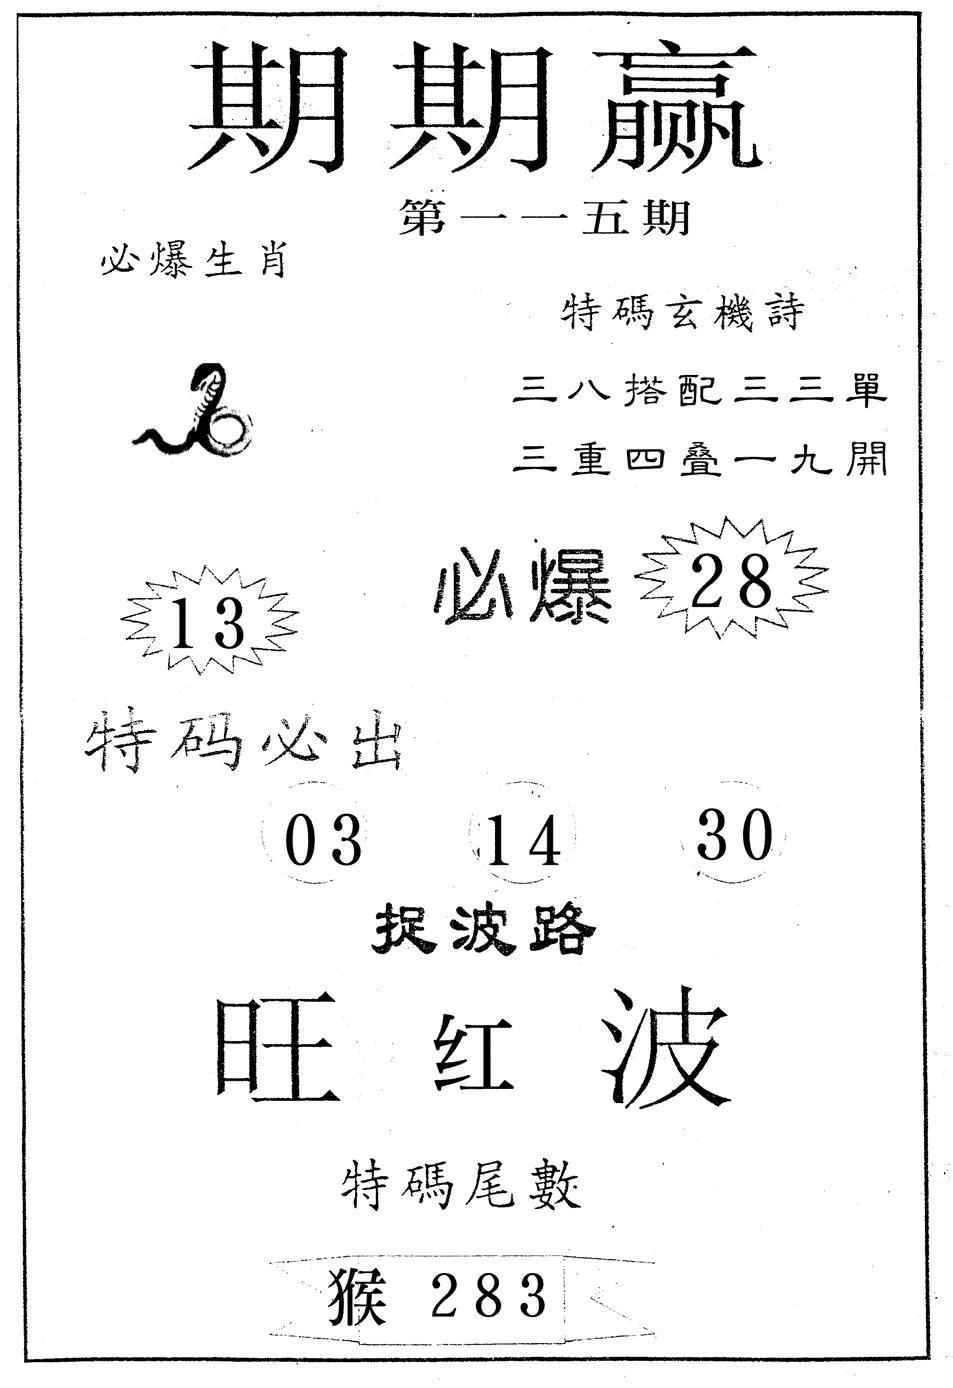 期期赢
第一一五期
必爆生肖
特碼玄機詩
三八搭配三三單
三重四叠一九開
必爆 28
13
特码必出
03 14 30
捉波路
旺红波
特碼尾數
猴 283